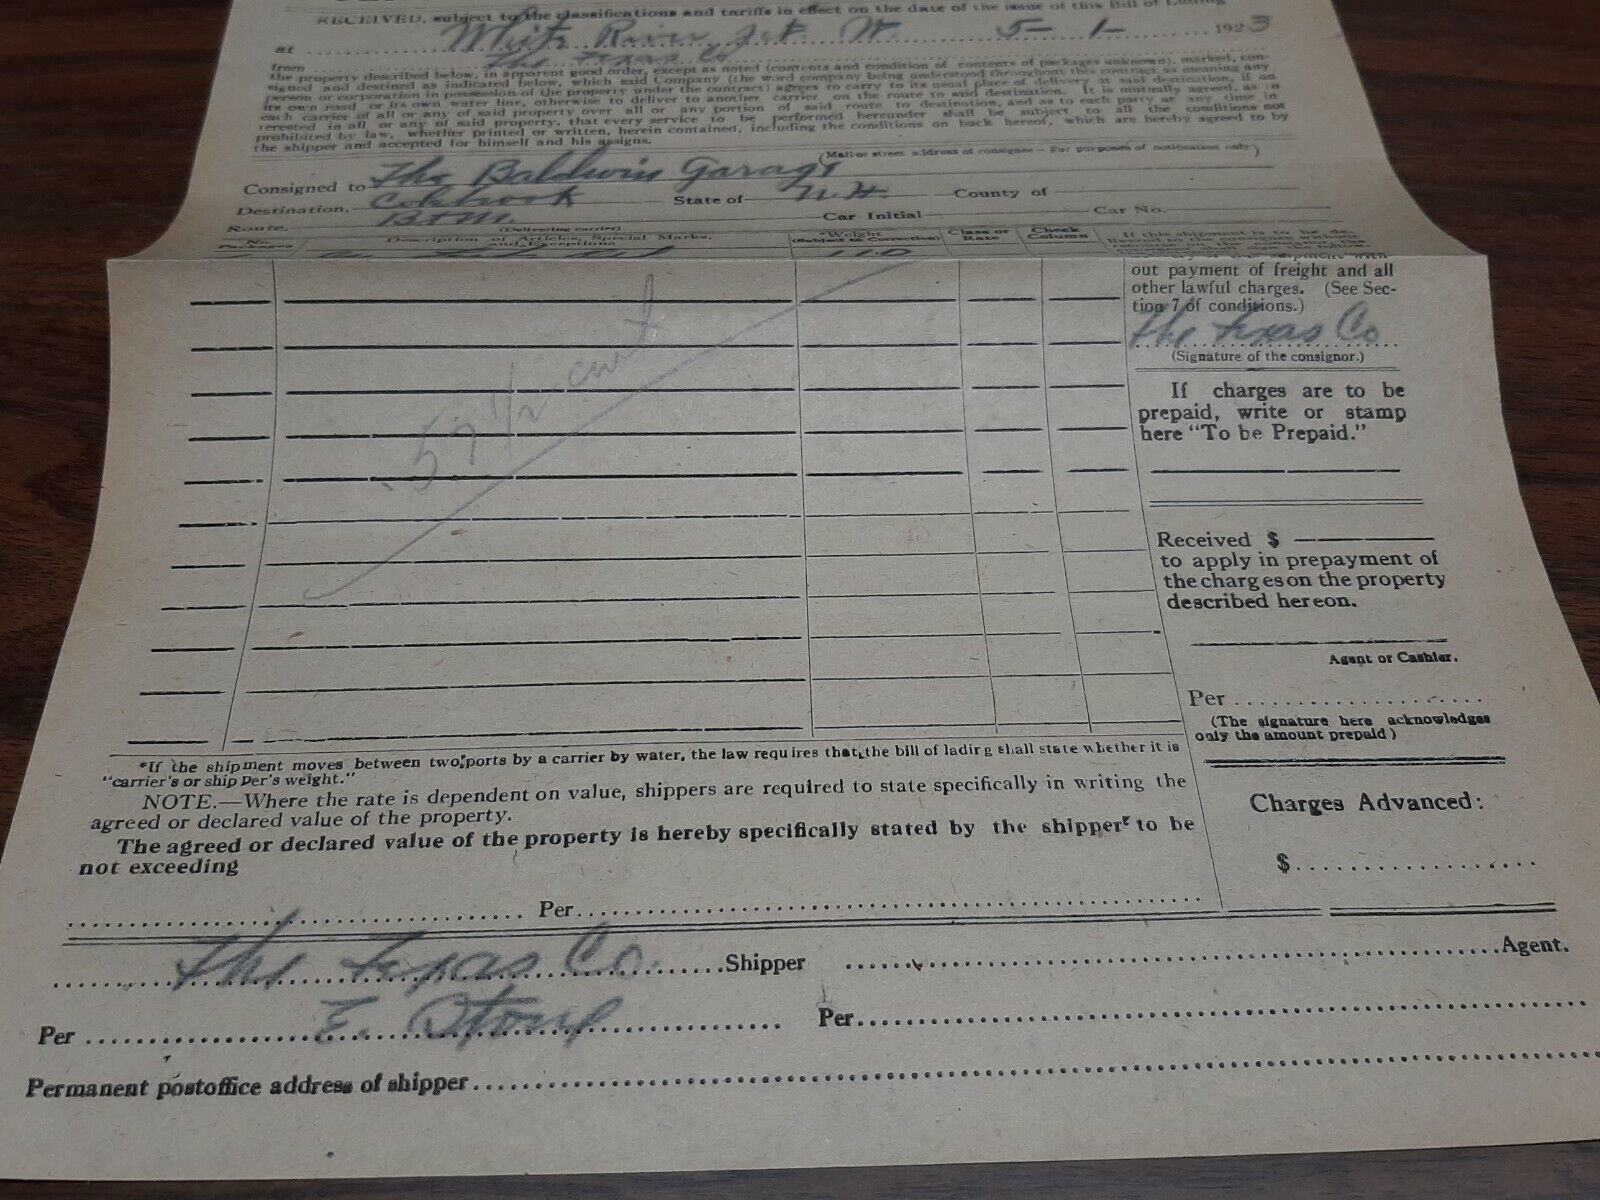 RECEIVED, subject to the classifications and tariffs in effect on the date of the issue of this Bill of Lading
at White River Jct. Vt 5-1- 1923
from The Texas Co
the property described below, in apparent good order, except as noted (contents and condition of contents of packages unknown), marked, con-
signed and destined as indicated below, which said Company (the word company being understood throughout this contract as meaning any
person or corporation in possession of the property under the contract) agrees to carry to its usual place of delivery at said destination, if on
its own road or its own water line, otherwise to deliver to another carrier on the route to said destination. It is mutually agreed, as to
each carrier of all or any of said property over all or any portion of said route to destination, and as to each party at any time in
terested in all or any of said property, that every service to be performed hereunder shall be subject to all the conditions not
prohibited by law, whether printed or written, herein contained, including the conditions on back hereof, which are hereby agreed to by
the shipper and accepted for himself and his assigns.
(Mail or street address of consignee—For purposes of notification only)
Consigned to The Baldwin Garage
Destination, Colebrook State of N.H. County of
Route, B+M. Car Initial Car No.
(Delivering carrier)
No. Packages
Description of Articles, Special Marks, and Exceptions
*Weight (Subject to Correction)
Class or Rate
Check Column
If this shipment is to be de-
110
out payment of freight and all
other lawful charges. (See Sec-
tion 7 of conditions.)
The Texas Co
(Signature of the consignor.)
.57 1/2 cwt
If charges are to be
prepaid, write or stamp
here "To be Prepaid."
Received $
to apply in prepayment of
the charges on the property
described hereon.
Agent or Cashier.
Per
(The signature here acknowledges
only the amount prepaid)
*If the shipment moves between two ports by a carrier by water, the law requires that the bill of lading shall state whether it is
"carrier's or shipper's weight."
NOTE.—Where the rate is dependent on value, shippers are required to state specifically in writing the
agreed or declared value of the property.
The agreed or declared value of the property is hereby specifically stated by the shipper to be
not exceeding
Charges Advanced:
$
Per
The Texas Co. Shipper Agent.
Per E. Stone Per
Permanent postoffice address of shipper